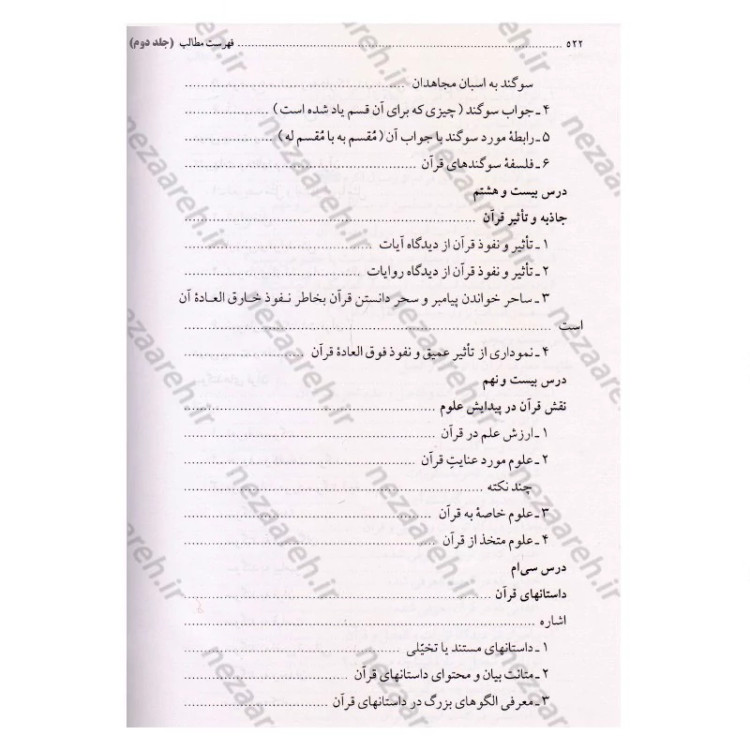 ۵۲۲ ........ فهرست مطالب (جلد دوم)
سوگند به اسبان مجاهدان ........
۴ ـ جواب سوگند (چیزی که برای آن قسم یاد شده است) ........
۵ ـ رابطهٔ مورد سوگند با جواب آن (مُقسم به با مُقسم له) ........
۶ ـ فلسفهٔ سوگندهای قرآن ........
درس بیست و هشتم
جاذبه و تأثیر قرآن ........
۱ ـ تأثیر و نفوذ قرآن از دیدگاه آیات ........
۲ ـ تأثیر و نفوذ قرآن از دیدگاه روایات ........
۳ ـ ساحر خواندن پیامبر و سحر دانستن قرآن بخاطر نـفوذ خـارق العـادهٔ آن
است ........
۴ ـ نموداری از تأثیر عمیق و نفوذ فوق العادهٔ قرآن ........
درس بیست و نهم
نقش قرآن در پیدایش علوم ........
۱ ـ ارزش علم در قرآن ........
۲ ـ علوم مورد عنایتِ قرآن ........
چند نکته ........
۳ ـ علوم خاصهٔ به قرآن ........
۴ ـ علوم متخذ از قرآن ........
درس سی‌ام
داستانهای قرآن ........
اشاره ........
۱ ـ داستانهای مستند یا تخیّلی ........
۲ ـ متانت بیان و محتوای داستانهای قرآن ........
۳ ـ معرفی الگوهای بزرگ در داستانهای قرآن ........
nezaareh.ir